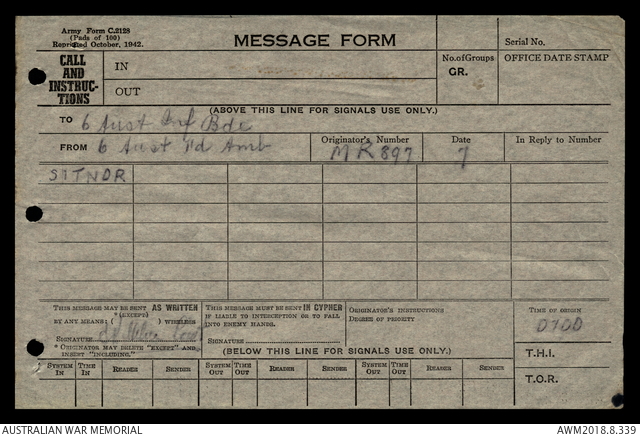 Army Form C.2128
(Pads of 100)
Reprinted October, 1942.
MESSAGE FORM
Serial No.
CALL AND INSTRUC- TIONS
IN
OUT
No. of Groups
GR.
OFFICE DATE STAMP
(ABOVE THIS LINE FOR SIGNALS USE ONLY.)
TO 6 Aust Inf Bde
FROM 6 Aust Fd Amb
Originator's Number
MR897
Date
7
In Reply to Number
SITNOR
THIS MESSAGE MAY BE SENT AS WRITTEN
*(EXCEPT)
BY ANY MEANS ( ) WIRELESS
SIGNATURE
* ORIGINATOR MAY DELETE "EXCEPT" AND INSERT "INCLUDING."
THIS MESSAGE MUST BE SENT IN CYPHER
IF LIABLE TO INTERCEPTION OR TO FALL
INTO ENEMY HANDS.
SIGNATURE
ORIGINATOR'S INSTRUCTIONS
DEGREE OF PRIORITY
TIME OF ORIGIN
0700
(BELOW THIS LINE FOR SIGNALS USE ONLY.)
T.H.I.
T.O.R.
SYSTEM IN TIME IN READER SENDER SYSTEM OUT TIME OUT READER SENDER SYSTEM OUT TIME OUT READER SENDER
AUSTRALIAN WAR MEMORIAL
AWM2018.8.339